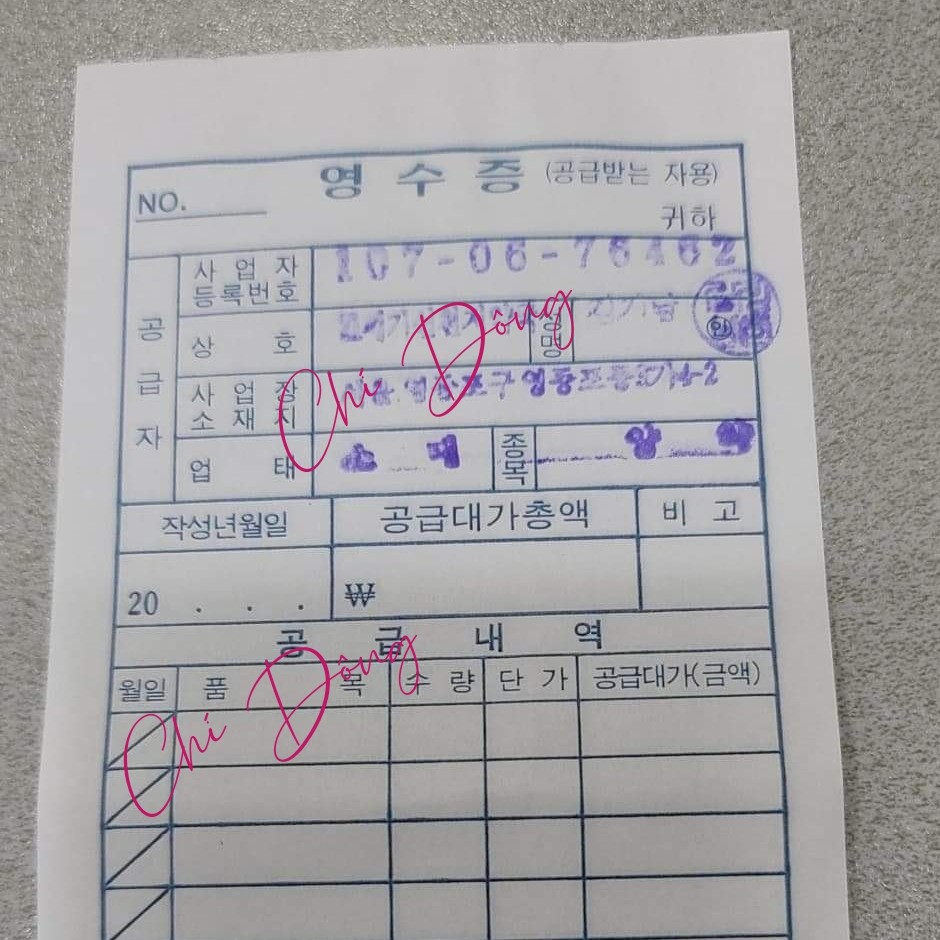 영 수 증 (공급받는 자용)
NO.
귀하
공급자
사업자등록번호 107-06-76462
상 호
성명
인
사업장소재지 영등포구
업 태 소 매 종목
작성년월일 공급대가총액 비 고
20 . . . ₩
공 급 내 역
월일 품 목 수 량 단 가 공급대가(금액)
Chí Dông
Chí Dông